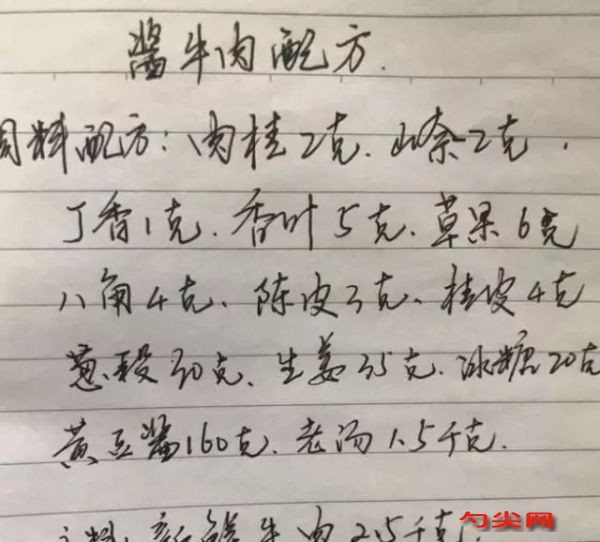 酱牛肉配方.
周料配方：肉桂2克、山奈2克，
丁香1克、香叶5克、草果6克
八角4克、陈皮3克、桂皮4克
葱段30克、生姜35克、冰糖20克
黄豆酱160克、老汤1.5千克.
主料：新鲜牛肉2.5千克.
勺尖网